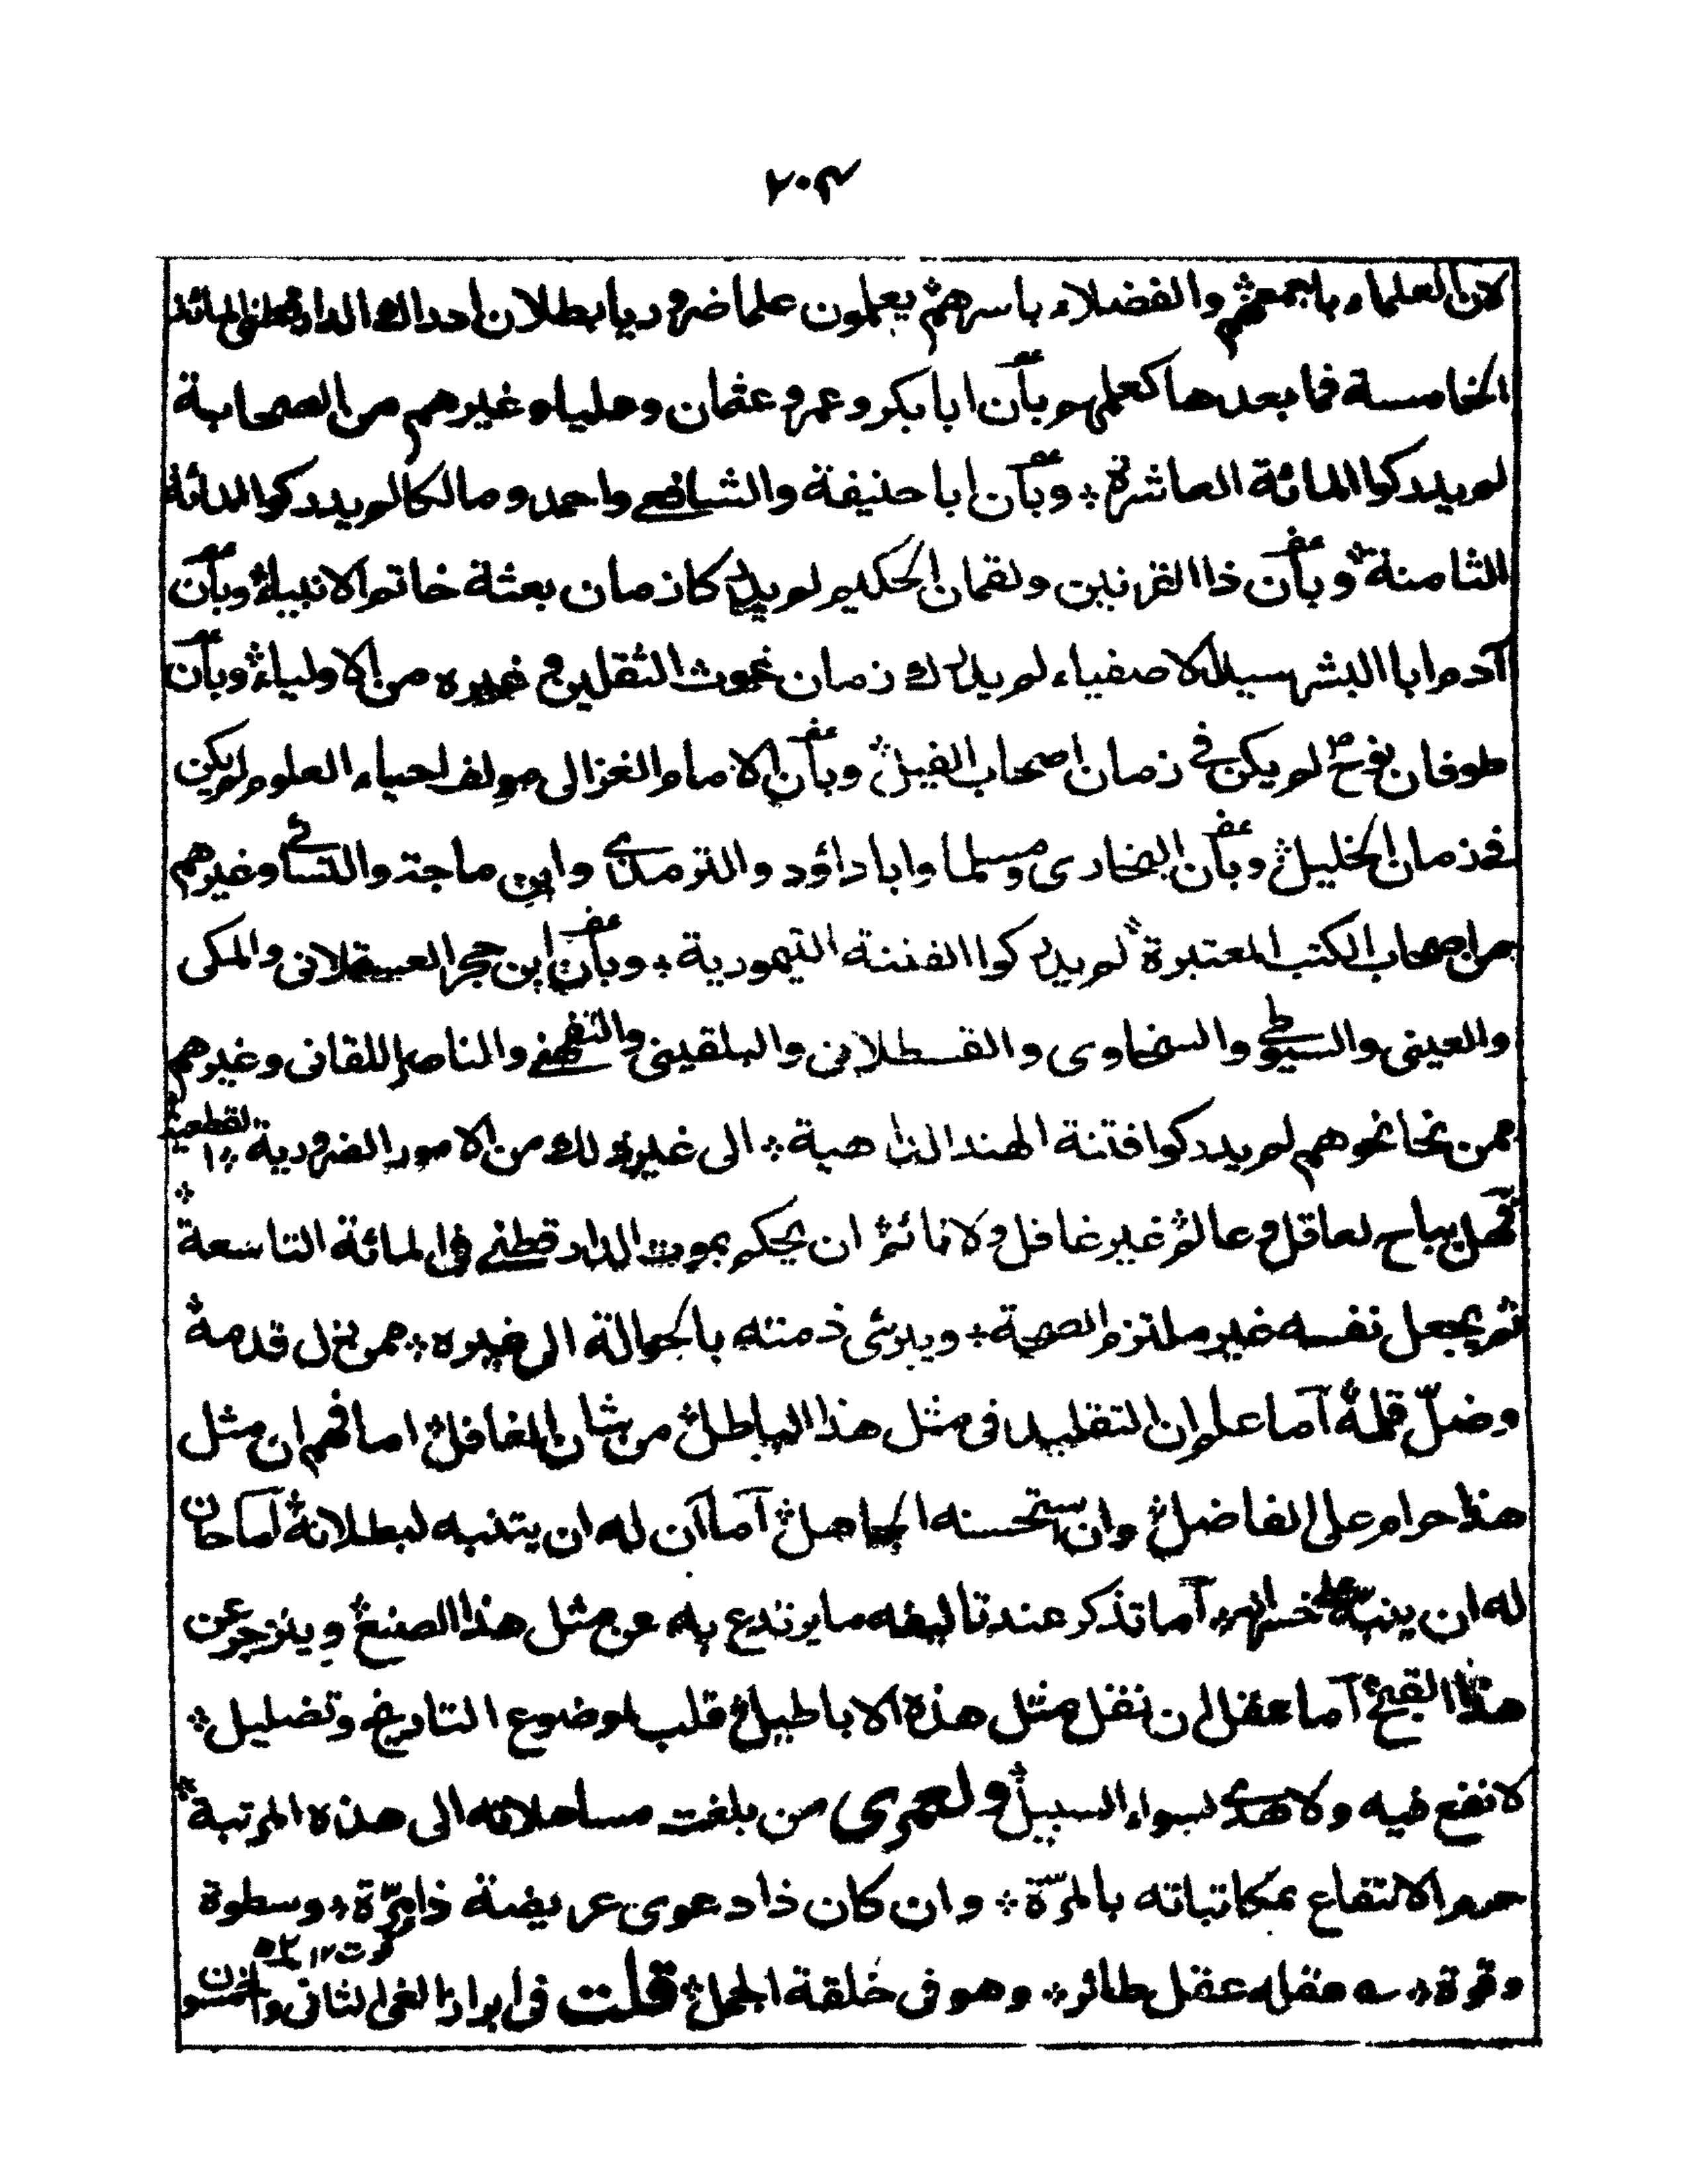 ٢٠٤
لان العلماء باجمعهم؞ والفضلاء باسرهم؞ يعلمون علما ضروريا ببطلان ادراك الدارقطني المائة
الخامسة فما بعدها كعلمهم وبأن ابا بكر وعمر وعثمان وعليا وغيرهم من الصحابة
لم يدركوا المائة العاشرة؞ وبأن ابا حنيفة والشافعي واحمد ومالكا لم يدركوا المائة
الثامنة؞ وبأن ذا القرنين ولقمان الحكيم لم يدركا زمان بعثة خاتم الانبياء؞ وبأن
آدم ابا البشر سيد الاصفياء لم يدرك زمان غوث الثقلين وغيره من الاولياء؞ وبأن
طوفان نوح لم يكن في زمان اصحاب الفيل؞ وبأن الامام الغزالى مولف احياء العلوم لم يكن
فى زمان الخليل؞ وبأن البخارى ومسلما وابا داؤد والترمذي وابن ماجة والنسائي وغيرهم
من اصحاب الكتب المعتبرة؞ لم يدركوا الفتنة التيمورية؞ وبأن ابن حجر العسقلانى والمكى
والعينى والسيوطي والسخاوى والقسطلانى والبلقينى والتفهني والناصر اللقانى وغيرهم
ممن نحا نحوهم لم يدركوا فتنة الهند الذاهبة؞ الى غير ذلك من الامور الضرورية القطعية؞
فهل يباح لعاقل وعالم؞ غير غافل ولا نائم؞ ان يحكم بموت الدارقطني فى المائة التاسعة
ثم يجعل نفسه غير ملتزم الصحة؞ ويبرئ ذمته بالحوالة الى غيره؞ ممن نزل قدمه؞
وضلّ قلمه؞ آما علم ان التقليد فى مثل هذا الباطل؞ من شان الغافل؞ اما فهم ان مثل
هذا حرام على الفاضل؞ وان يستحسنه الجاهل؞ آما آن له ان يتنبه لبطلانه؞ آما حان
له ان ينبّه على خسرانه؞ آما تذكر عند تاليفه ما يرتدع به عن مثل هذا الصنيع؞ وينزجر عن
هذا القبيح؞ آما عقل ان نقل مثل هذه الاباطيل؞ قلب لموضوع التاريخ وتضليل؞
لا نفع فيه ولا هدي لسواء السبيل؞ ولعمرى من بلغت مساهلاته الى هذه المرتبة؞
حرم الانتفاع بمكاتباته بالمرّة؞ وان كان ذا دعوى عريضة ذا مِرّة؞ وسطوة
وقوة؞ ـه عقله عقل طائر؞ وهو فى خلقة الجمل؞ قلت فى ابراز الغى الثانى والخمسون